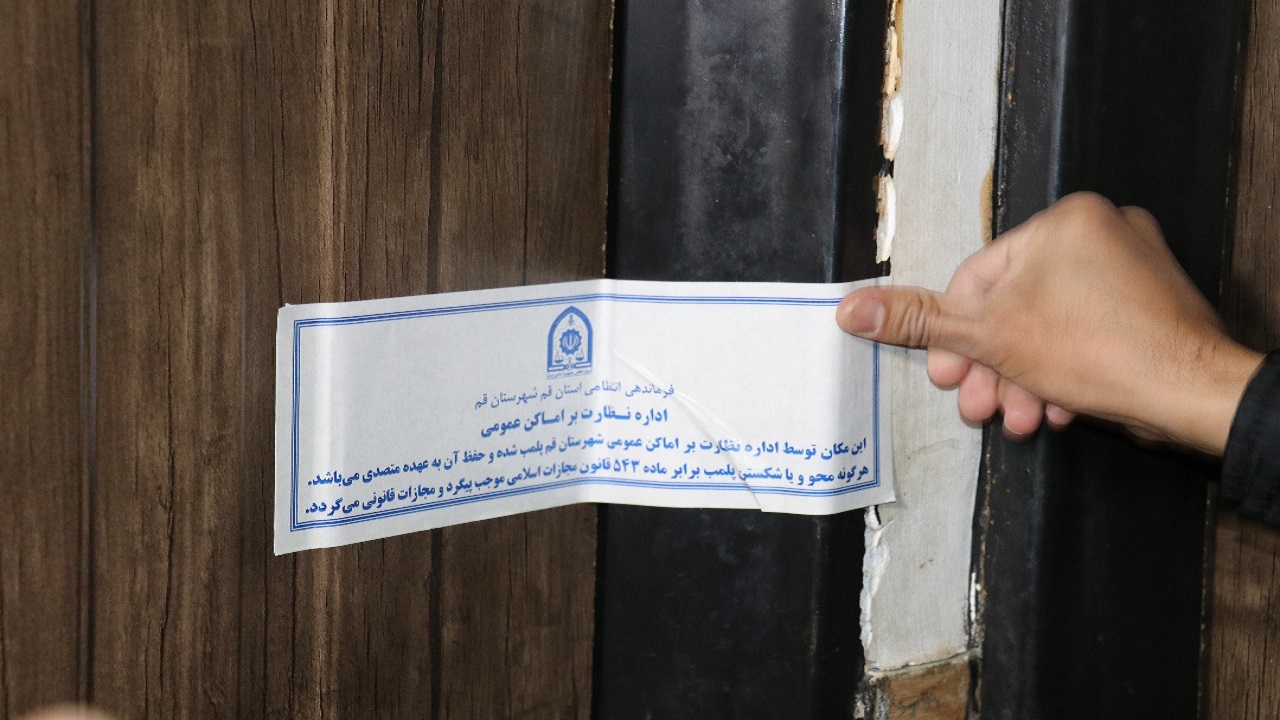 فرماندهی انتظامی استان قم شهرستان قم
اداره نـظارت بر اماکن عمومی
این مکان توسط اداره نظارت بر اماکن عمومی شهرستان قم پلمب شده و حفظ آن به عهده متصدی می‌باشد.
هرگونه محو و یا شکستن پلمب برابر ماده ۵۴۳ قانون مجازات اسلامی موجب پیگرد و مجازات قانونی می‌گردد.